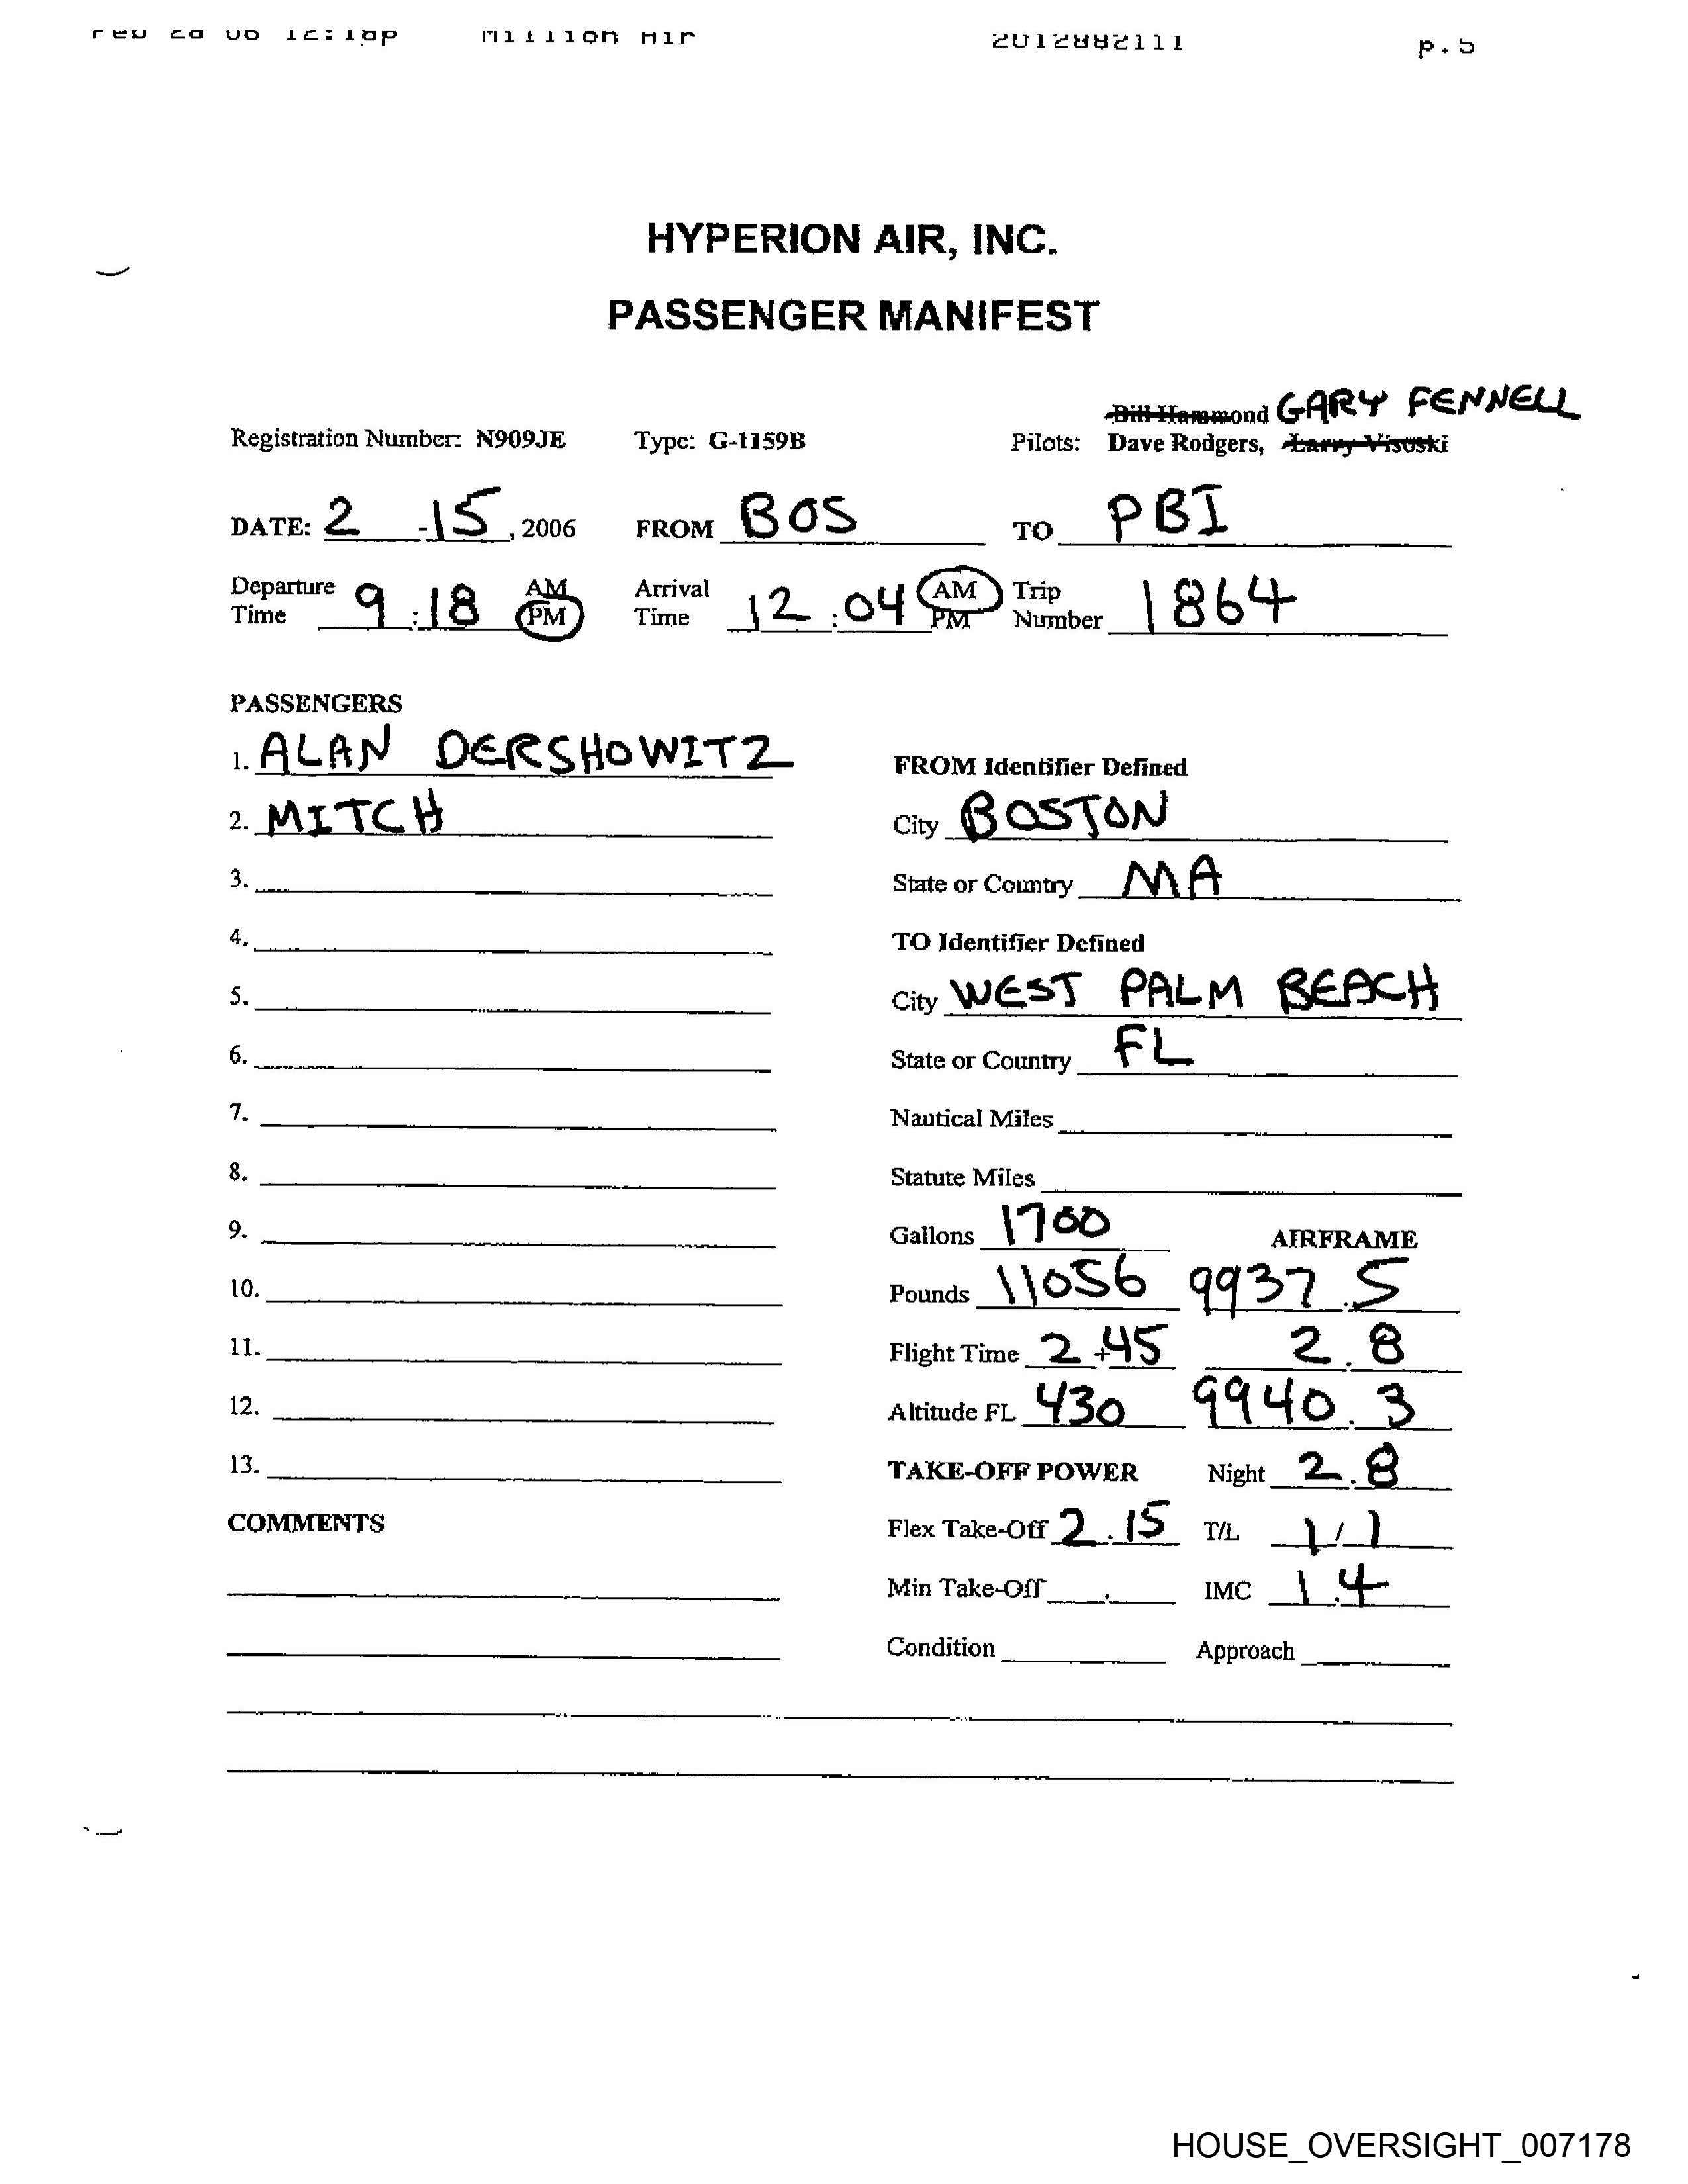 Feb 28 06 12:18p Million Air 2012882111 p.5
HYPERION AIR, INC.
PASSENGER MANIFEST
Bill Hammond GARY FENNELL
Registration Number: N909JE Type: G-1159B Pilots: Dave Rodgers, Larry Visoski
DATE: 2 - 15, 2006 FROM BOS TO PBI
Departure Time 9:18 AM PM Arrival Time 12:04 AM PM Trip Number 1864
PASSENGERS
1. ALAN DERSHOWITZ
FROM Identifier Defined
2. MITCH
City BOSTON
3.
State or Country MA
4.
TO Identifier Defined
5.
City WEST PALM BEACH
6.
State or Country FL
7.
Nautical Miles
8.
Statute Miles
9.
Gallons 1700 AIRFRAME
10.
Pounds 11056 9937.5
11.
Flight Time 2+45 2.8
12.
Altitude FL 430 9940.3
13.
TAKE-OFF POWER Night 2.8
COMMENTS
Flex Take-Off 2.15 T/L 1/1
Min Take-Off . IMC 1.4
Condition Approach
HOUSE_OVERSIGHT_007178